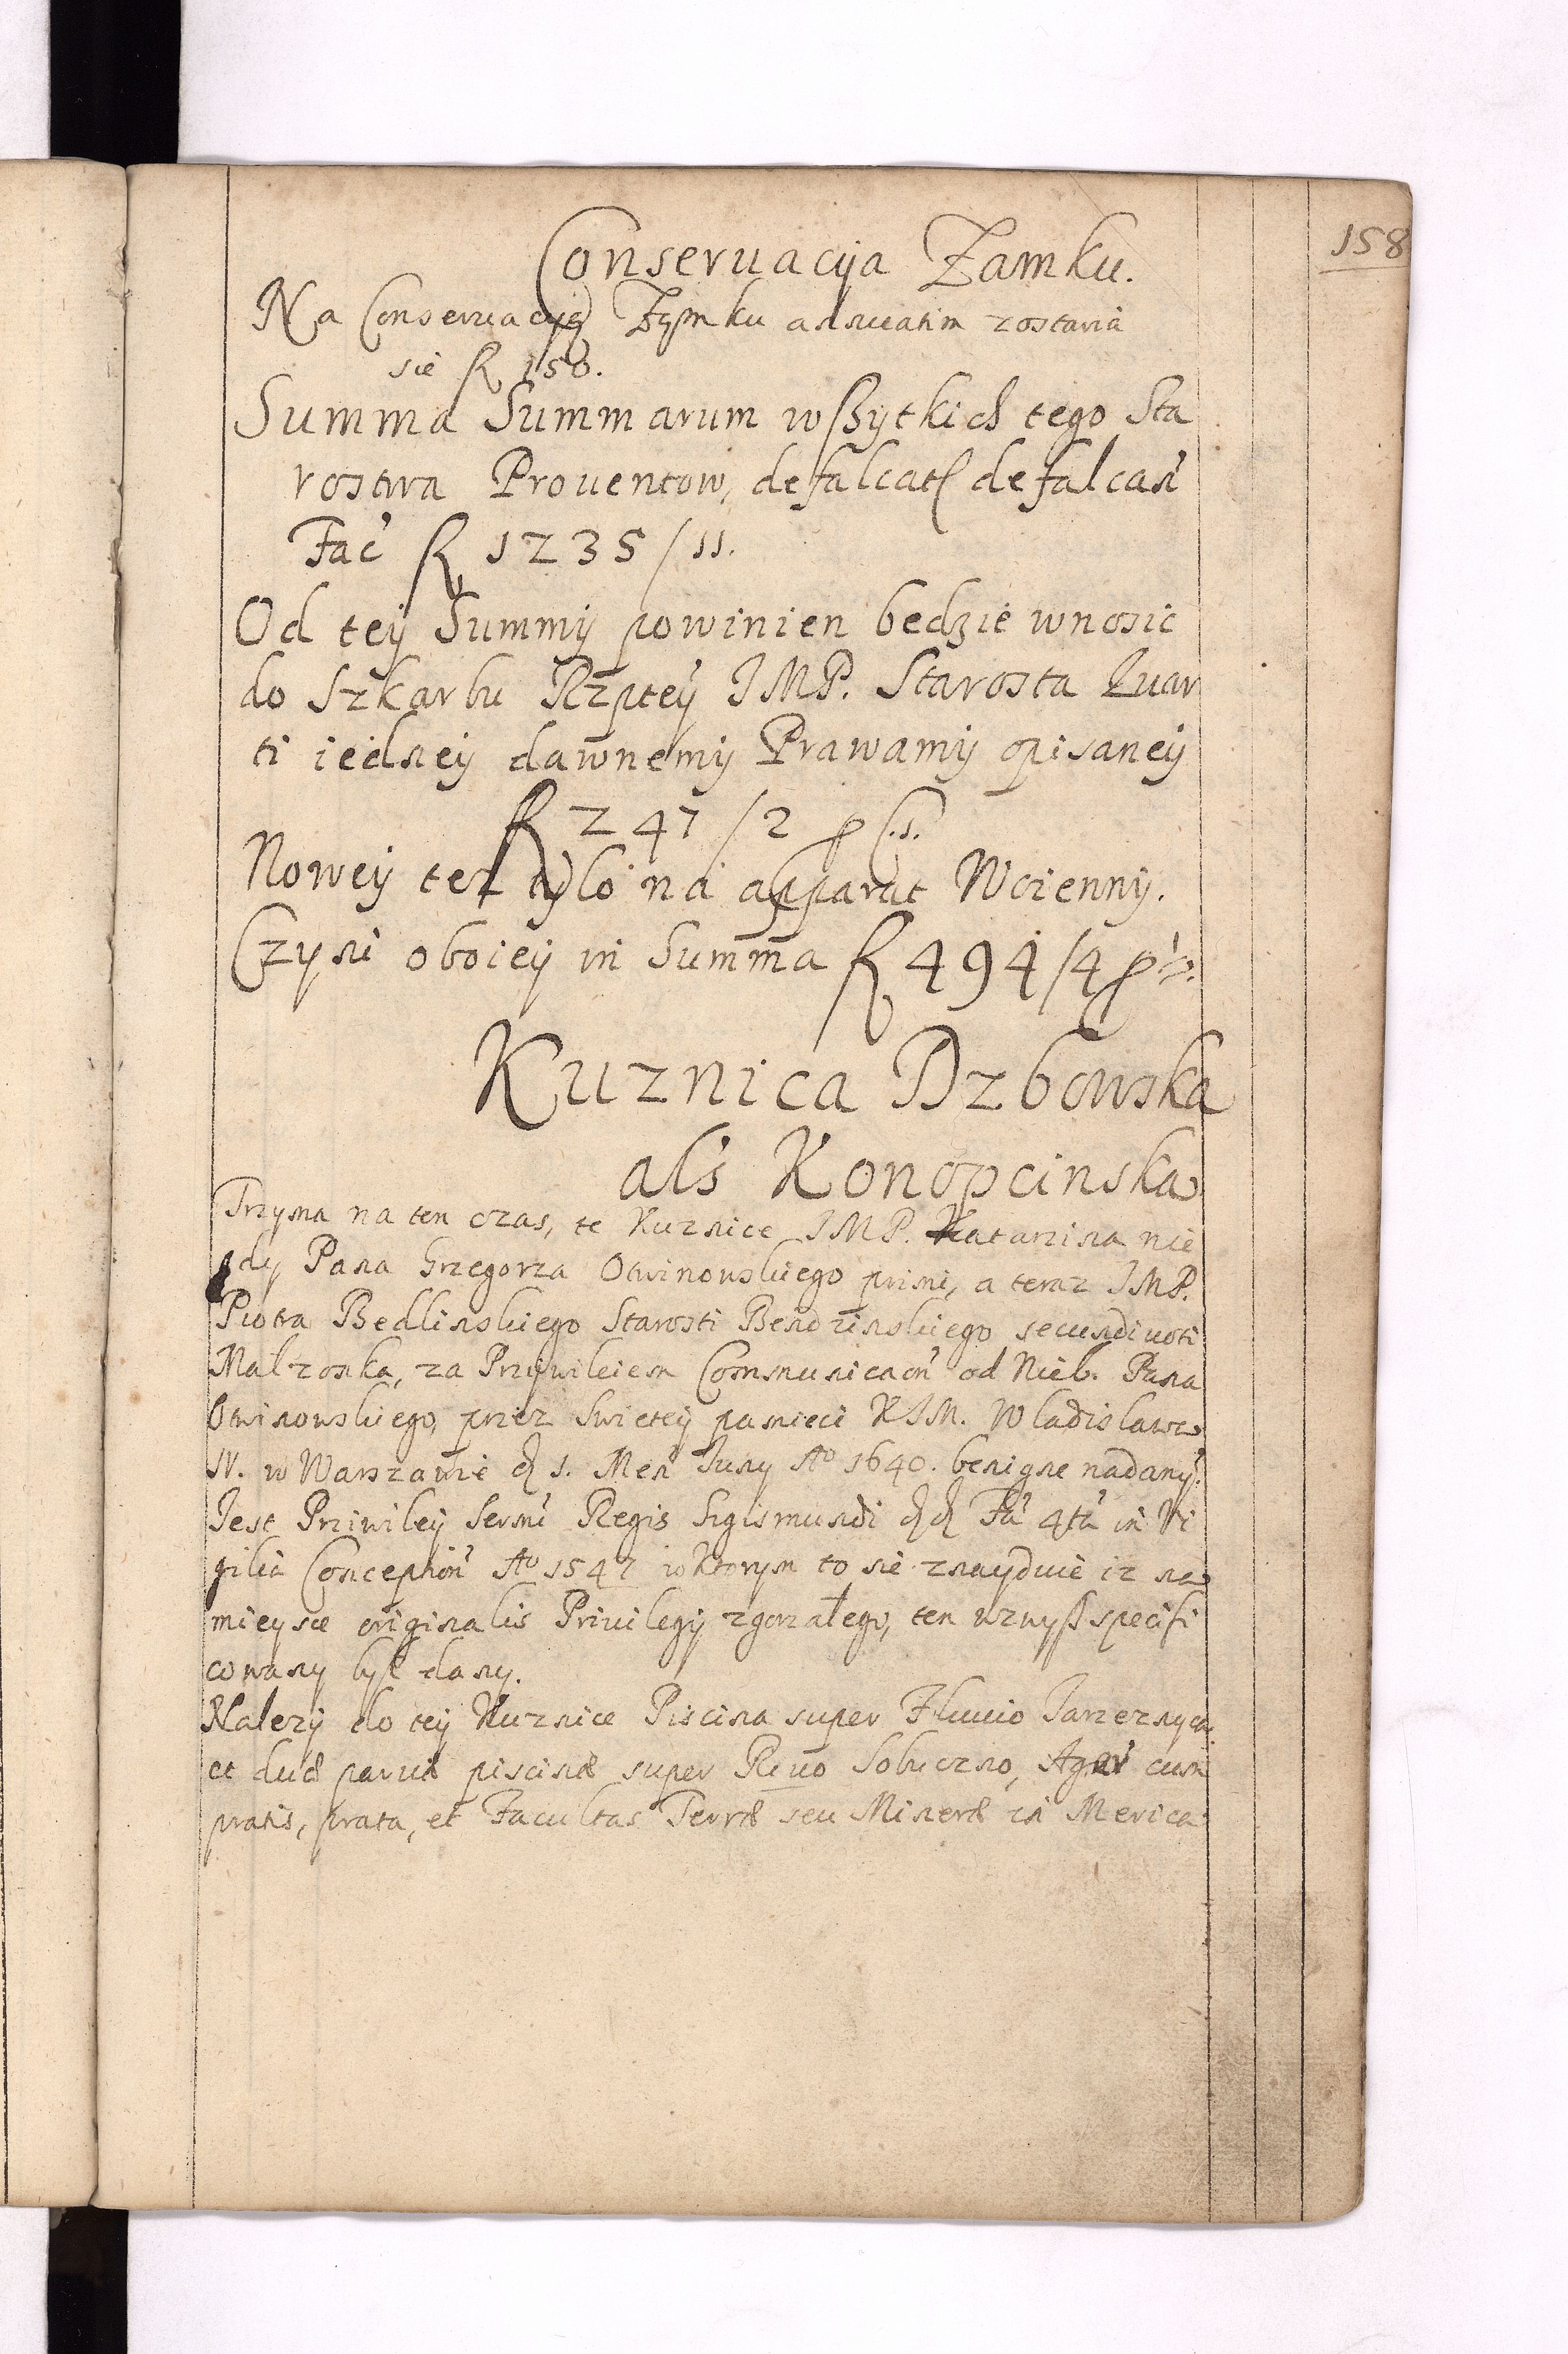 158
Conseruacyja Zamku.
Na Conseruacyję Zamku annuatim zostawia
sie fl 150.
Summa Summarum wszytkich tego Sta
rostwa Prouentow, defalcatis defalcań
Fać fl 1235/11.
Od teÿ Summÿ powinien bedzie wnosic
do Szkarbu Rzpteÿ JMP. Starosta Quar
ti iedneÿ dawnemÿ Prawamÿ opisaneÿ
fl 247/2
Noweÿ tez tylo na apparat Woienny.
Czyni oboieÿ in Summa fl 494/4
Kuznica Dzbowska
als Konopcinska
Trzyma na ten czas, te Kuznice JMP. Katarzina nie
gdy Pana Grzegorza Otwinowskiego primi, a teraz JMP.
Piotra Bedlinskiego Starosti Bendzinskiego secundi uoti
Malzonka, za Prziwileiem Communicaoń od Nieb. Pana
Otwinowskiego, przez Swieteÿ pamieci KJM. Wladislawa
IV. w Warszawie d 1. Meń Juny Aº 1640. benigne nadanÿ.
Jest Prziwileÿ Sermi Regis Sigismundi dd Fa 4ta in Vi
gilia Conceptioń Aº 1547 w ktorym to sie znayduie iz na
mieysce originalis Priuilegÿ zgorzałego, ten wzwysz specifi
cowany był dany.
Nalezÿ do teÿ Kuznice Piscina super Fluuio
et duæ paruæ piscinæ super Riuo Sobuczno, Agri cum
pratis, prata, et Facultas Terræ seu Mineræ in Merica